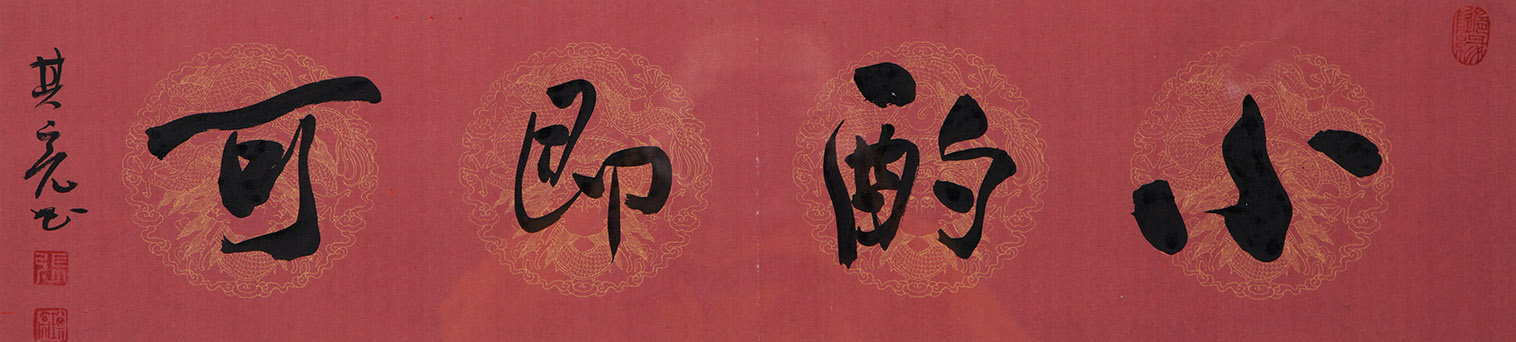 小酌即可
其亮书